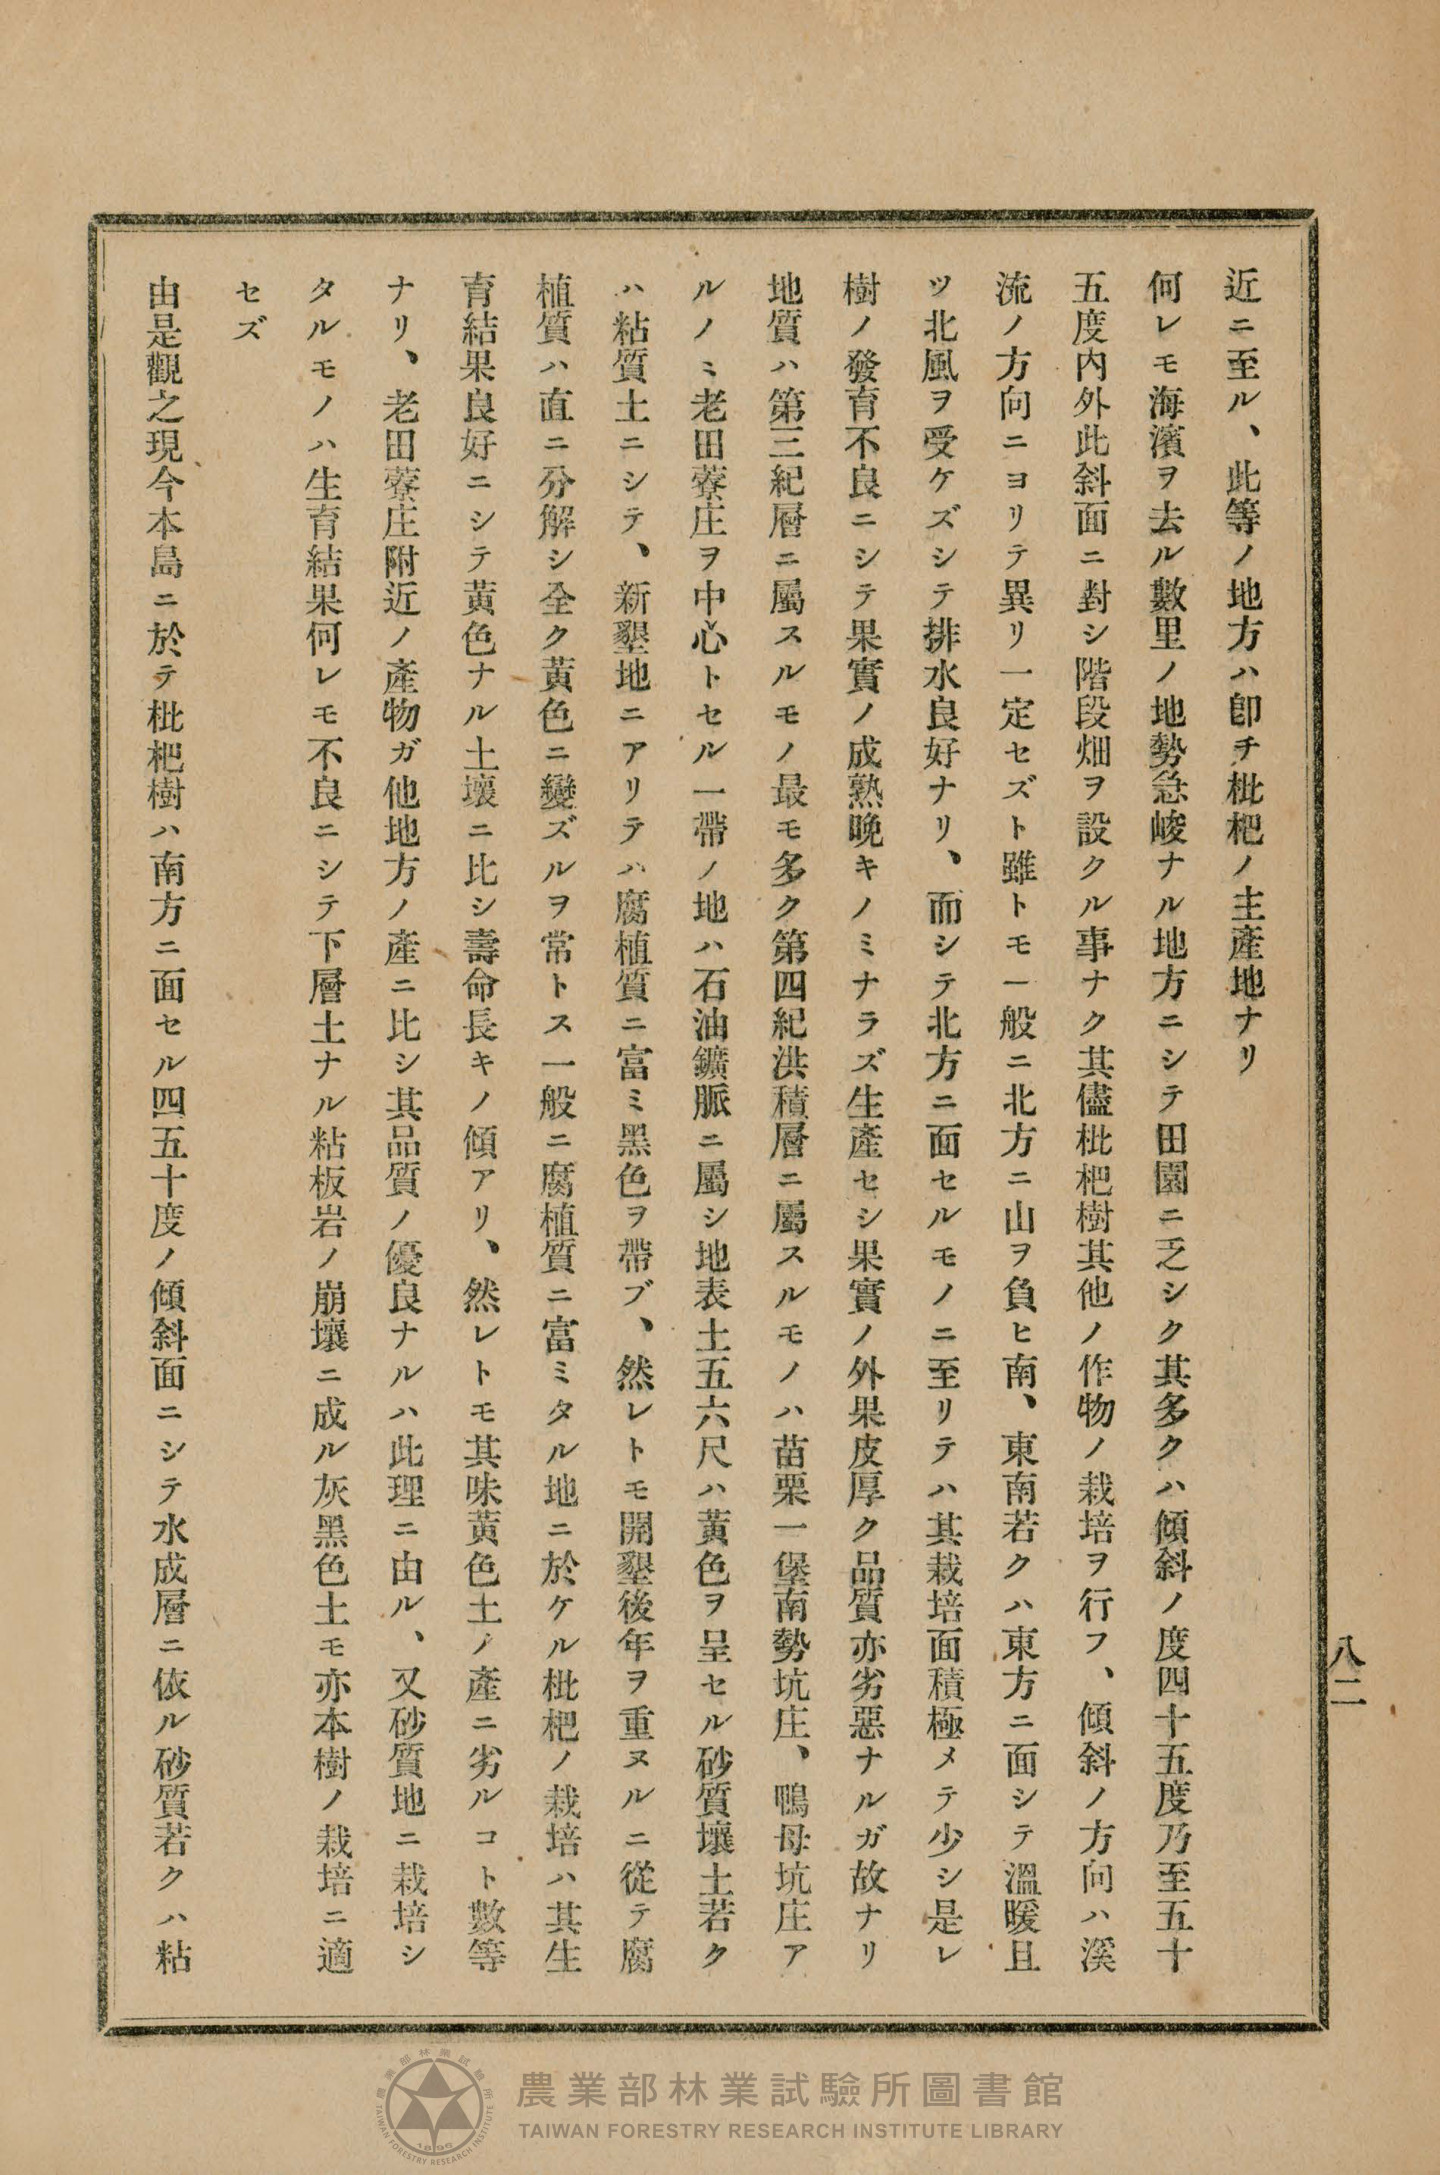 近ニ至ル、此等ノ地方ハ卽チ枇杷ノ主產地ナリ
何レモ海濱ヲ去ル數里ノ地勢急峻ナル地方ニシテ田園ニ乏シク其多クハ傾斜ノ度四十五度乃至五十
五度內外此斜面ニ對シ階段畑ヲ設クル事ナク其儘枇杷樹其他ノ作物ノ栽培ヲ行フ、傾斜ノ方向ハ溪
流ノ方向ニヨリテ異リ一定セズト雖トモ一般ニ北方ニ山ヲ負ヒ南、東南若クハ東方ニ面シテ溫暖且
ツ北風ヲ受ケズシテ排水良好ナリ、而シテ北方ニ面セルモノニ至リテハ其栽培面積極メテ少シ是レ
樹ノ發育不良ニシテ果實ノ成熟晚キノミナラズ生產セシ果實ノ外果皮厚ク品質亦劣惡ナルガ故ナリ
地質ハ第三紀層ニ屬スルモノ最モ多ク第四紀洪積層ニ屬スルモノハ苗栗一堡南勢坑庄、鴨母坑庄ア
ルノミ老田藔庄ヲ中心トセル一帶ノ地ハ石油鑛脈ニ屬シ地表土五六尺ハ黃色ヲ呈セル砂質壤土若ク
ハ粘質土ニシテ、新墾地ニアリテハ腐植質ニ富ミ黑色ヲ帶ブ、然レトモ開墾後年ヲ重ヌルニ從テ腐
植質ハ直ニ分解シ全ク黃色ニ變ズルヲ常トス一般ニ腐植質ニ富ミタル地ニ於ケル枇杷ノ栽培ハ其生
育結果良好ニシテ黃色ナル土壤ニ比シ壽命長キノ傾アリ、然レトモ其味黃色土ノ產ニ劣ルコト數等
ナリ、老田藔庄附近ノ產物ガ他地方ノ產ニ比シ其品質ノ優良ナルハ此理ニ由ル、又砂質地ニ栽培シ
タルモノハ生育結果何レモ不良ニシテ下層土ナル粘板岩ノ崩壞ニ成ル灰黑色土モ亦本樹ノ栽培ニ適
セズ
由是觀之現今本島ニ於テ枇杷樹ハ南方ニ面セル四五十度ノ傾斜面ニシテ水成層ニ依ル砂質若クハ粘
八二
農業部林業試驗所圖書館
TAIWAN FORESTRY RESEARCH INSTITUTE LIBRARY
農業部林業試驗所
TAIWAN FORESTRY RESEARCH INSTITUTE
1896